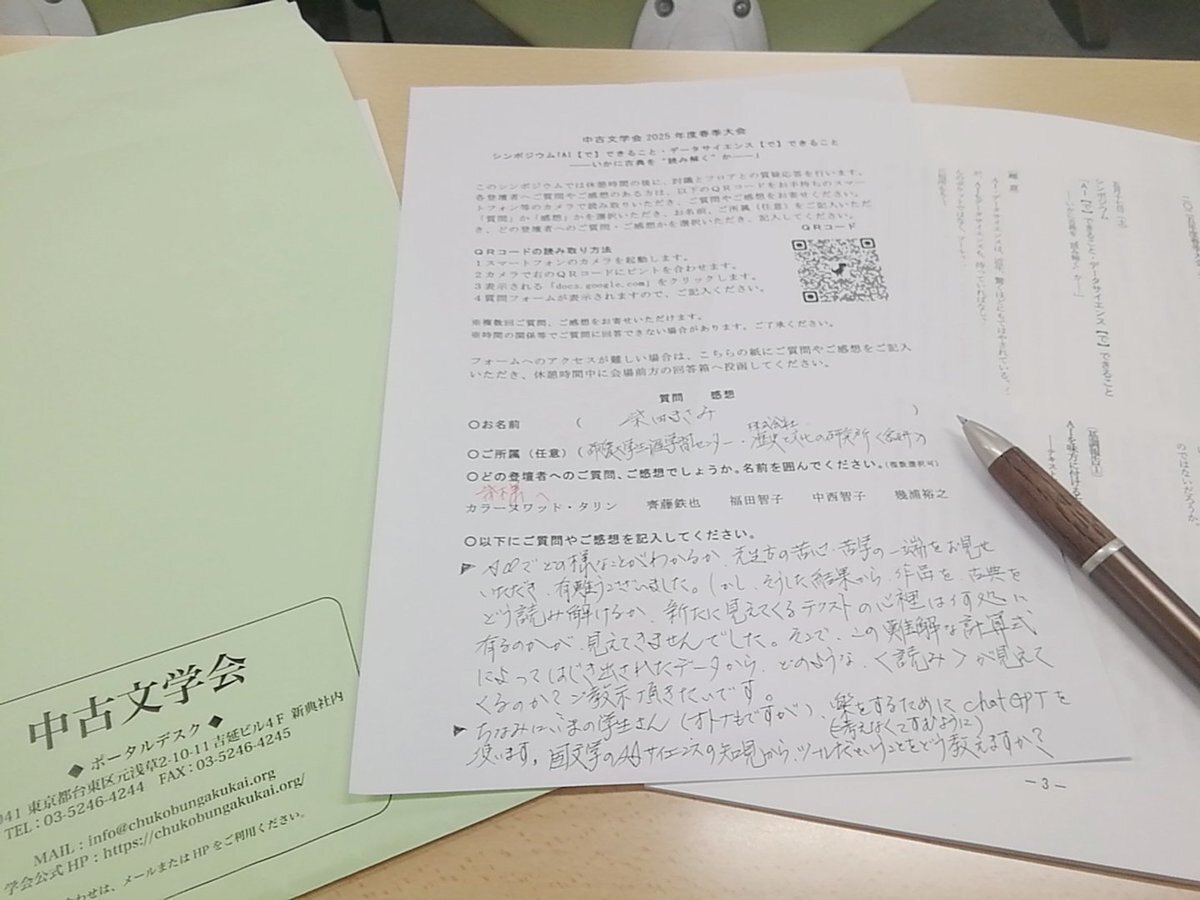 中古文学会2025年度春季大会
シンポジウム「AI【で】できること・データサイエンス【で】できること
――いかに古典を“読み解く”か――」
このシンポジウムでは休憩時間の後に、討議とフロアとの質疑応答を行います。
各登壇者へご質問やご感想のある方は、以下のQRコードをお手持ちのスマー
トフォン等のカメラで読み取りいただき、ご質問やご感想をお寄せください。
「質問」か「感想」かを選択いただき、お名前、ご所属(任意)をご記入いただ
き、どの登壇者へのご質問・ご感想かを選択いただき、記入してください。
QRコード
QRコードの読み取り方法
1スマートフォンのカメラを起動します。
2カメラで右のQRコードにピントを合わせます。
3表示される「docs.google.com」をクリックします。
4質問フォームが表示されますので、ご記入ください。
※複数回ご質問、ご感想をお寄せいただけます。
※時間の関係等でご質問に回答できない場合があります。ご了承ください。
フォームへのアクセスが難しい場合は、こちらの紙にご質問やご感想をご記入
いただき、休憩時間中に会場前方の回答箱へ投函してください。
質問 感想
○お名前 ( 柴田まさみ )
株式会社
○ご所属(任意)( 大学生涯学習センター・歴史と文化の研究所 )
○どの登壇者へのご質問、ご感想でしょうか。名前を囲んでください。(複数選択可)
皆様へ
カラーヌワット・タリン 齊藤鉄也 福田智子 中西智子 幾浦裕之
○以下にご質問やご感想を記入してください。
▶ でどの様なことがわかるか、先生方の苦心・苦学の一端をお見せ
いただき、有難うございました。しかし、そうした結果から、作品を、古典を
どう読み解けるか、新たに見えてくるテクストの心裡は何処に
有るのかが、見えてきませんでした。そこで、この難解な計算式
によってはじき出されたデータから、どのような、〈読み〉が見えて
くるのか?ご教示頂きたいです。
▶ ちなみに、いまの学生さん(オトナもですが)、楽をするためにchatGPTを
(考えなくてすむように)
使います。国文学のサイエンスの知見から、ツールだということをどう教えますか?
中古文学会
◆ ポータルデスク ◆
041 東京都台東区元浅草2-10-11 吉延ビル4F 新典社内
TEL:03-5246-4244 FAX:03-5246-4245
MAIL:info@chukobungakukai.org
学会公式HP:https://chukobungakukai.org/
わせは、メールまたはHPをご利用ください。
五月十七日(土)
シンポジウム
「AI【で】できること・データサイエンス【で】できること
――いかに古典を“読み解く”か――」
趣意
【基調報告1】
AIを味方に付ける
のではないだろうか
―3―